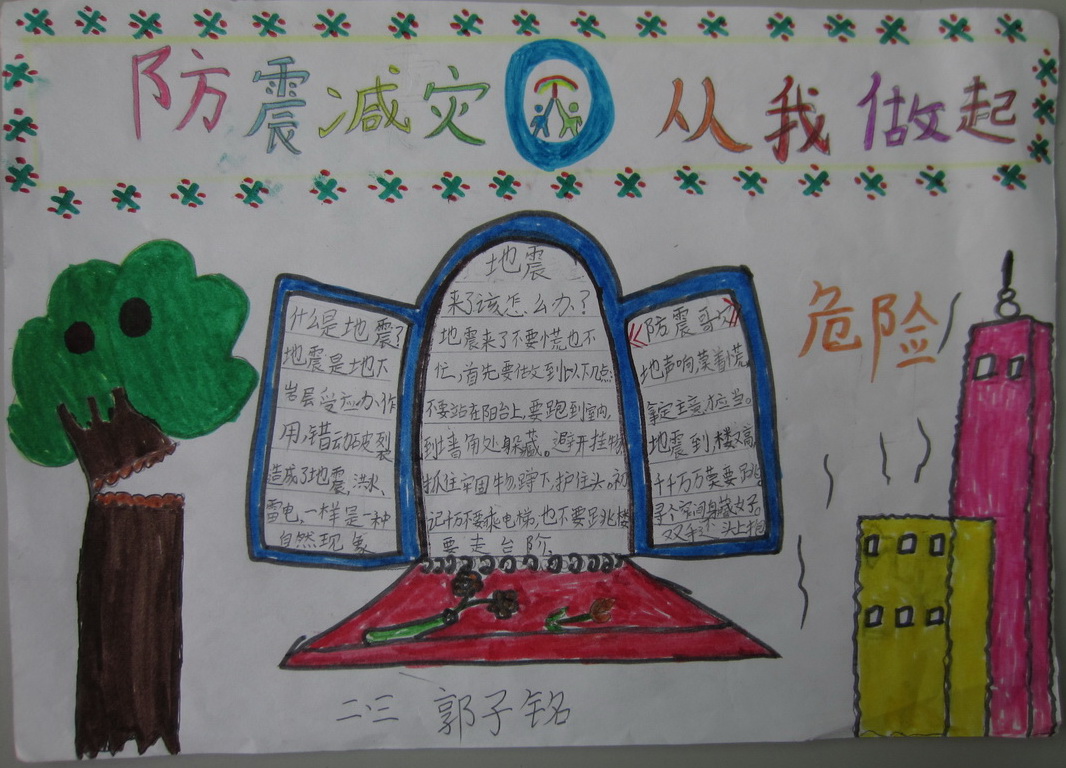 防震减灾 从我做起
什么是地震?
地震是地下
岩层受应力作
用,错动破裂
造成了地震,洪水、
雷电,一样是一种
自然现象
地震
来了该怎么办?
地震来了不要慌也不
忙,首先要做到以下几点
不要站在阳台上,要跑到室内,
到墙角处躲藏。避开挂物
抓住牢固物,蹲下,护住头。初
记十万不要乘电梯,也不要跳楼
要走台阶
《防震歌》
地声响,莫着慌。
拿定主意,
地震到,楼又高
千千万万莫要跳
寻个空间身藏
双手 头上抱
危险
二·三 郭子铭